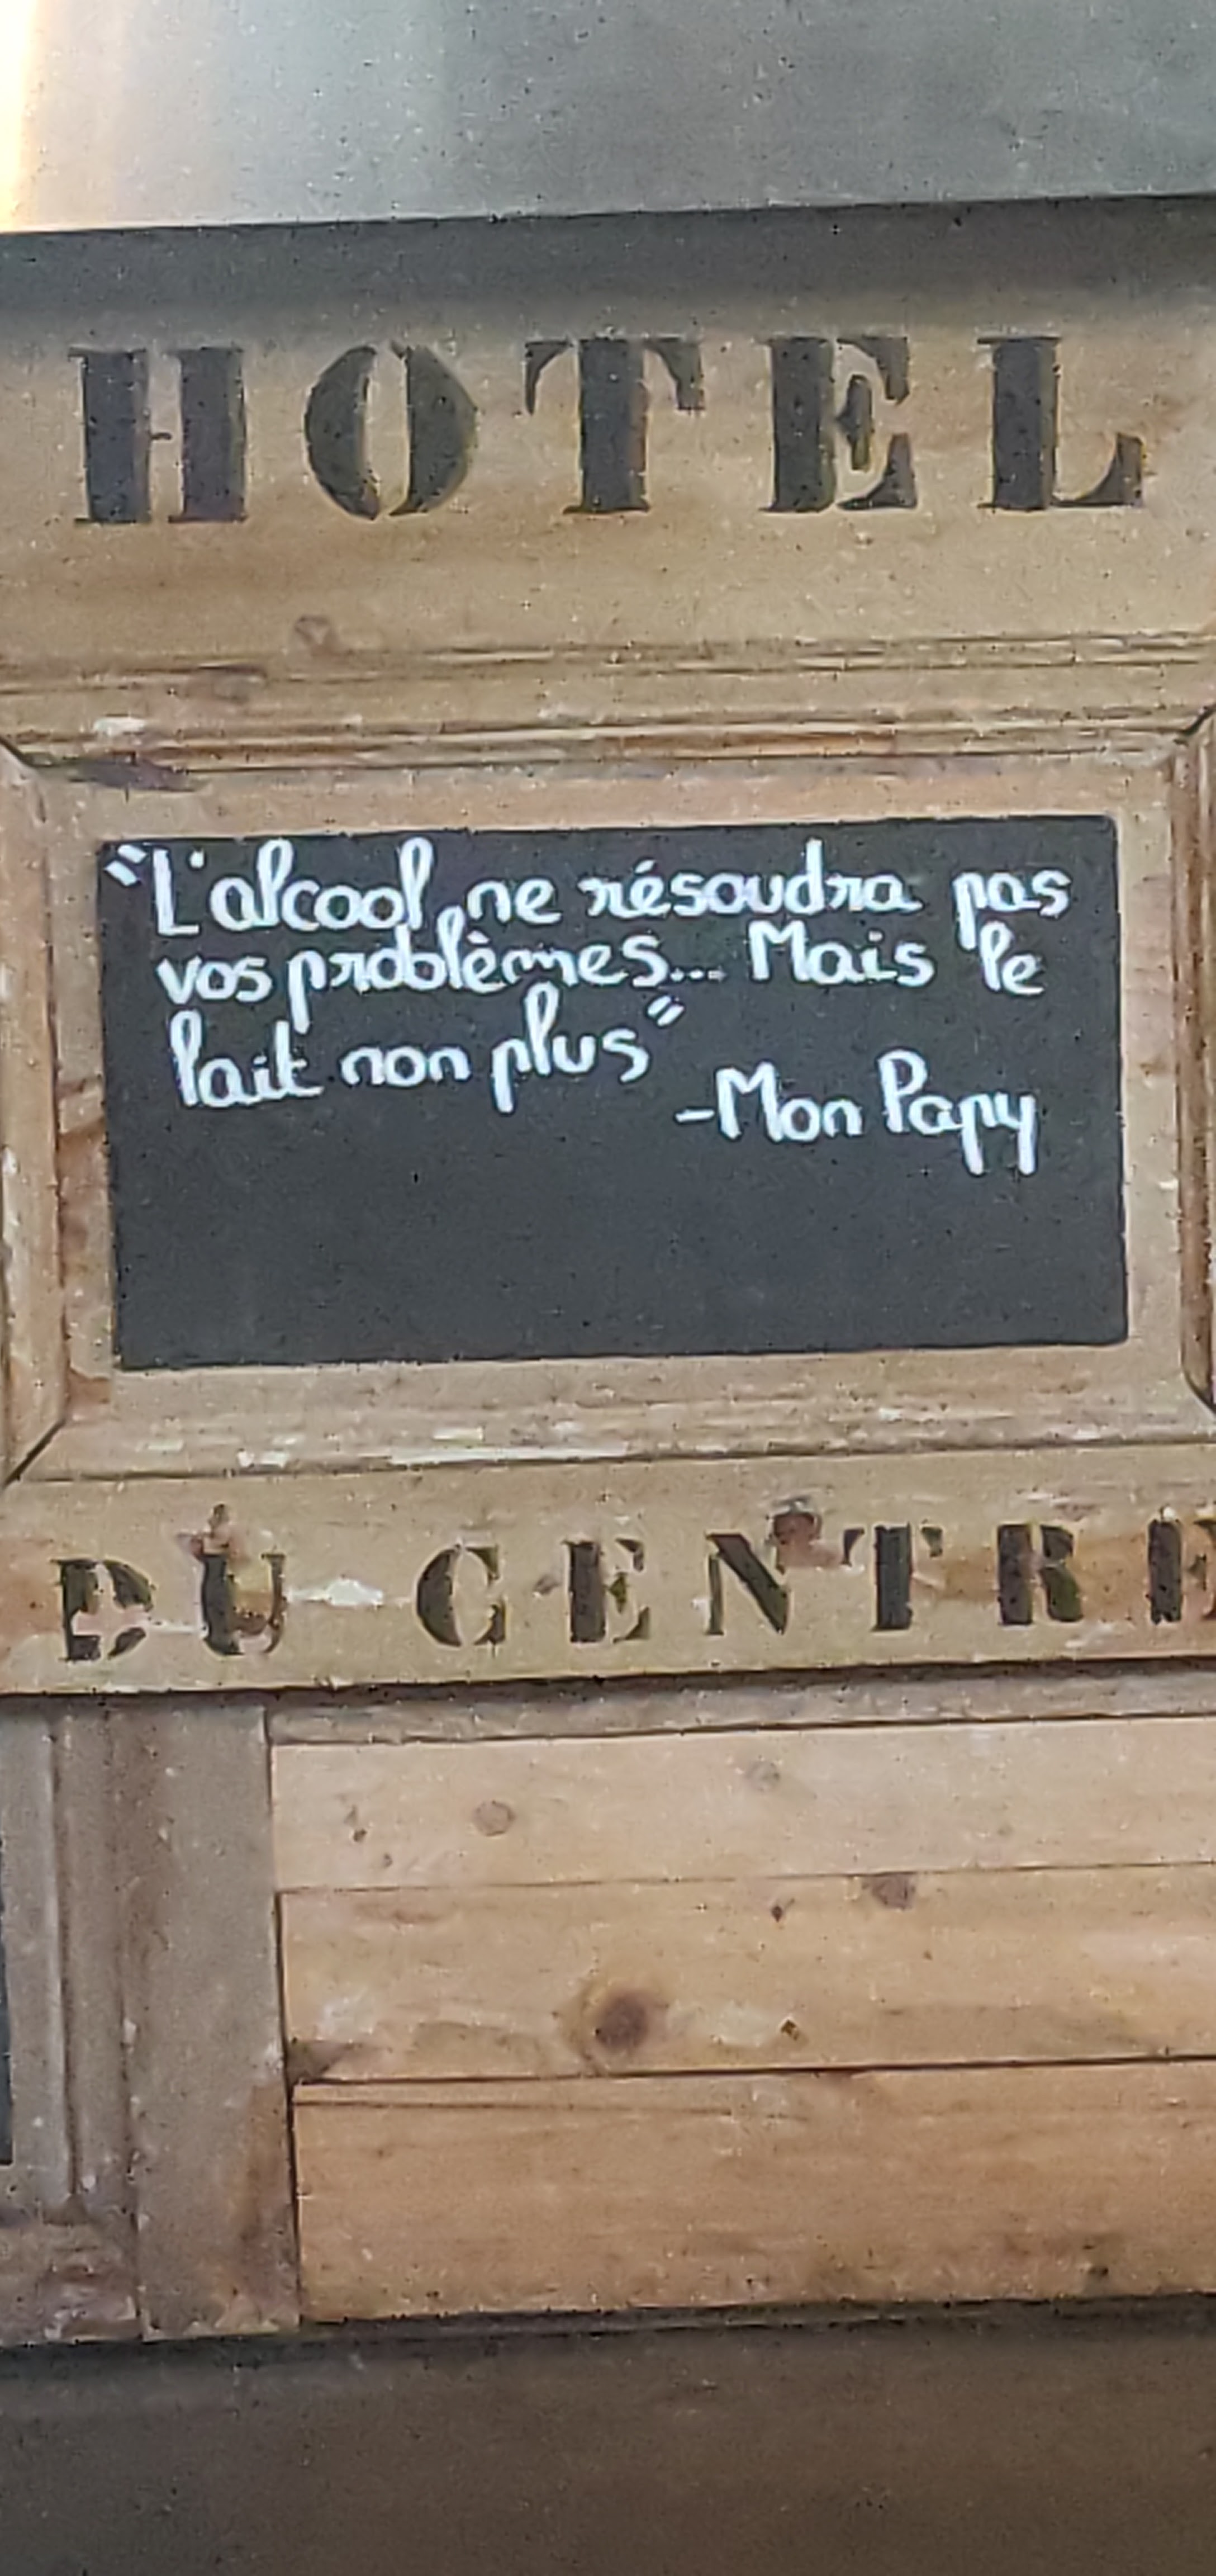 HOTEL
"L'alcool ne résoudra pas
vos problèmes... Mais le
lait non plus"
-Mon Papy
DU CENTRE